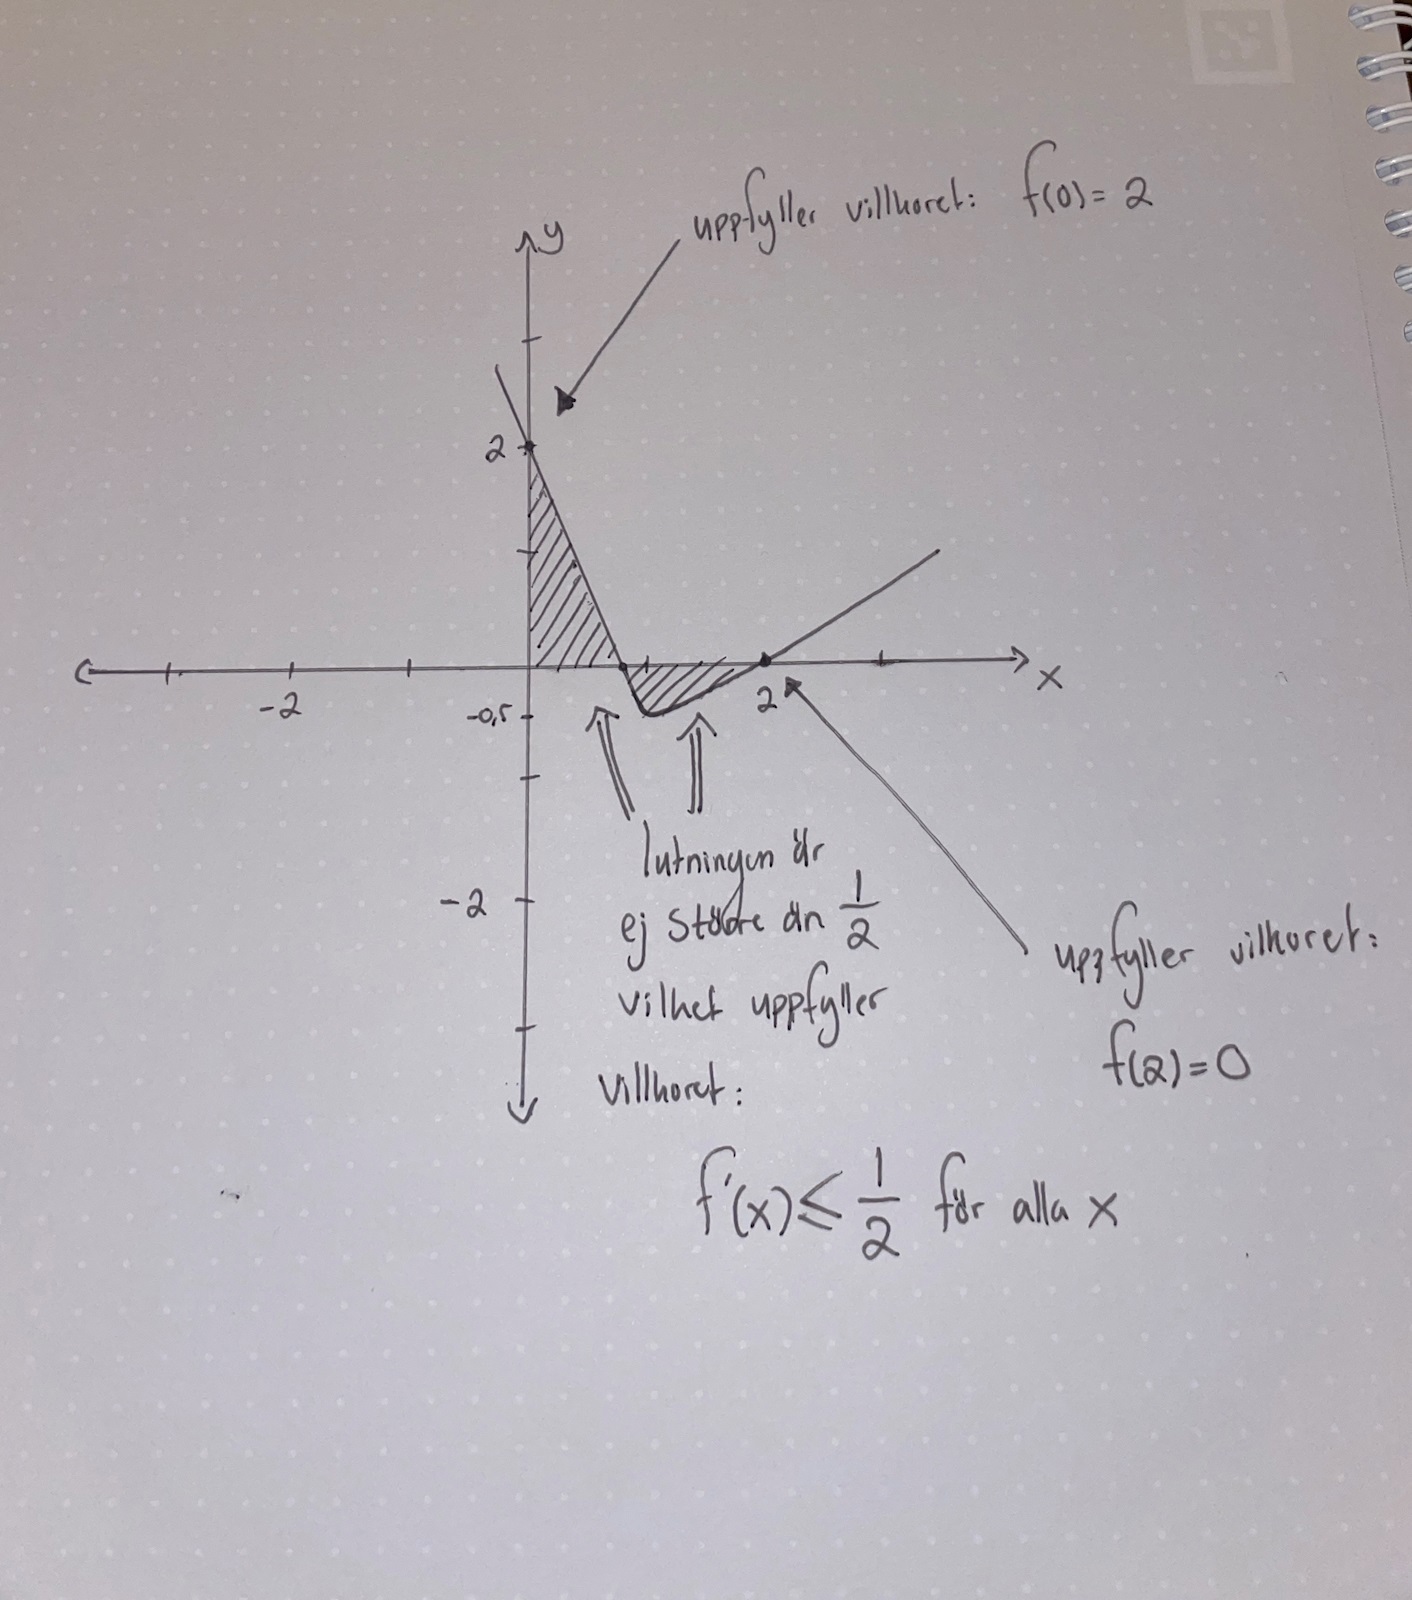 uppfyller villkoret: f(0) = 2
y
2
x
-2
-0,5
2
lutningen är
ej större än 1/2
-2
vilket uppfyller
villkoret:
uppfyller villkoret:
f(2) = 0
f'(x) ≤ 1/2 för alla x